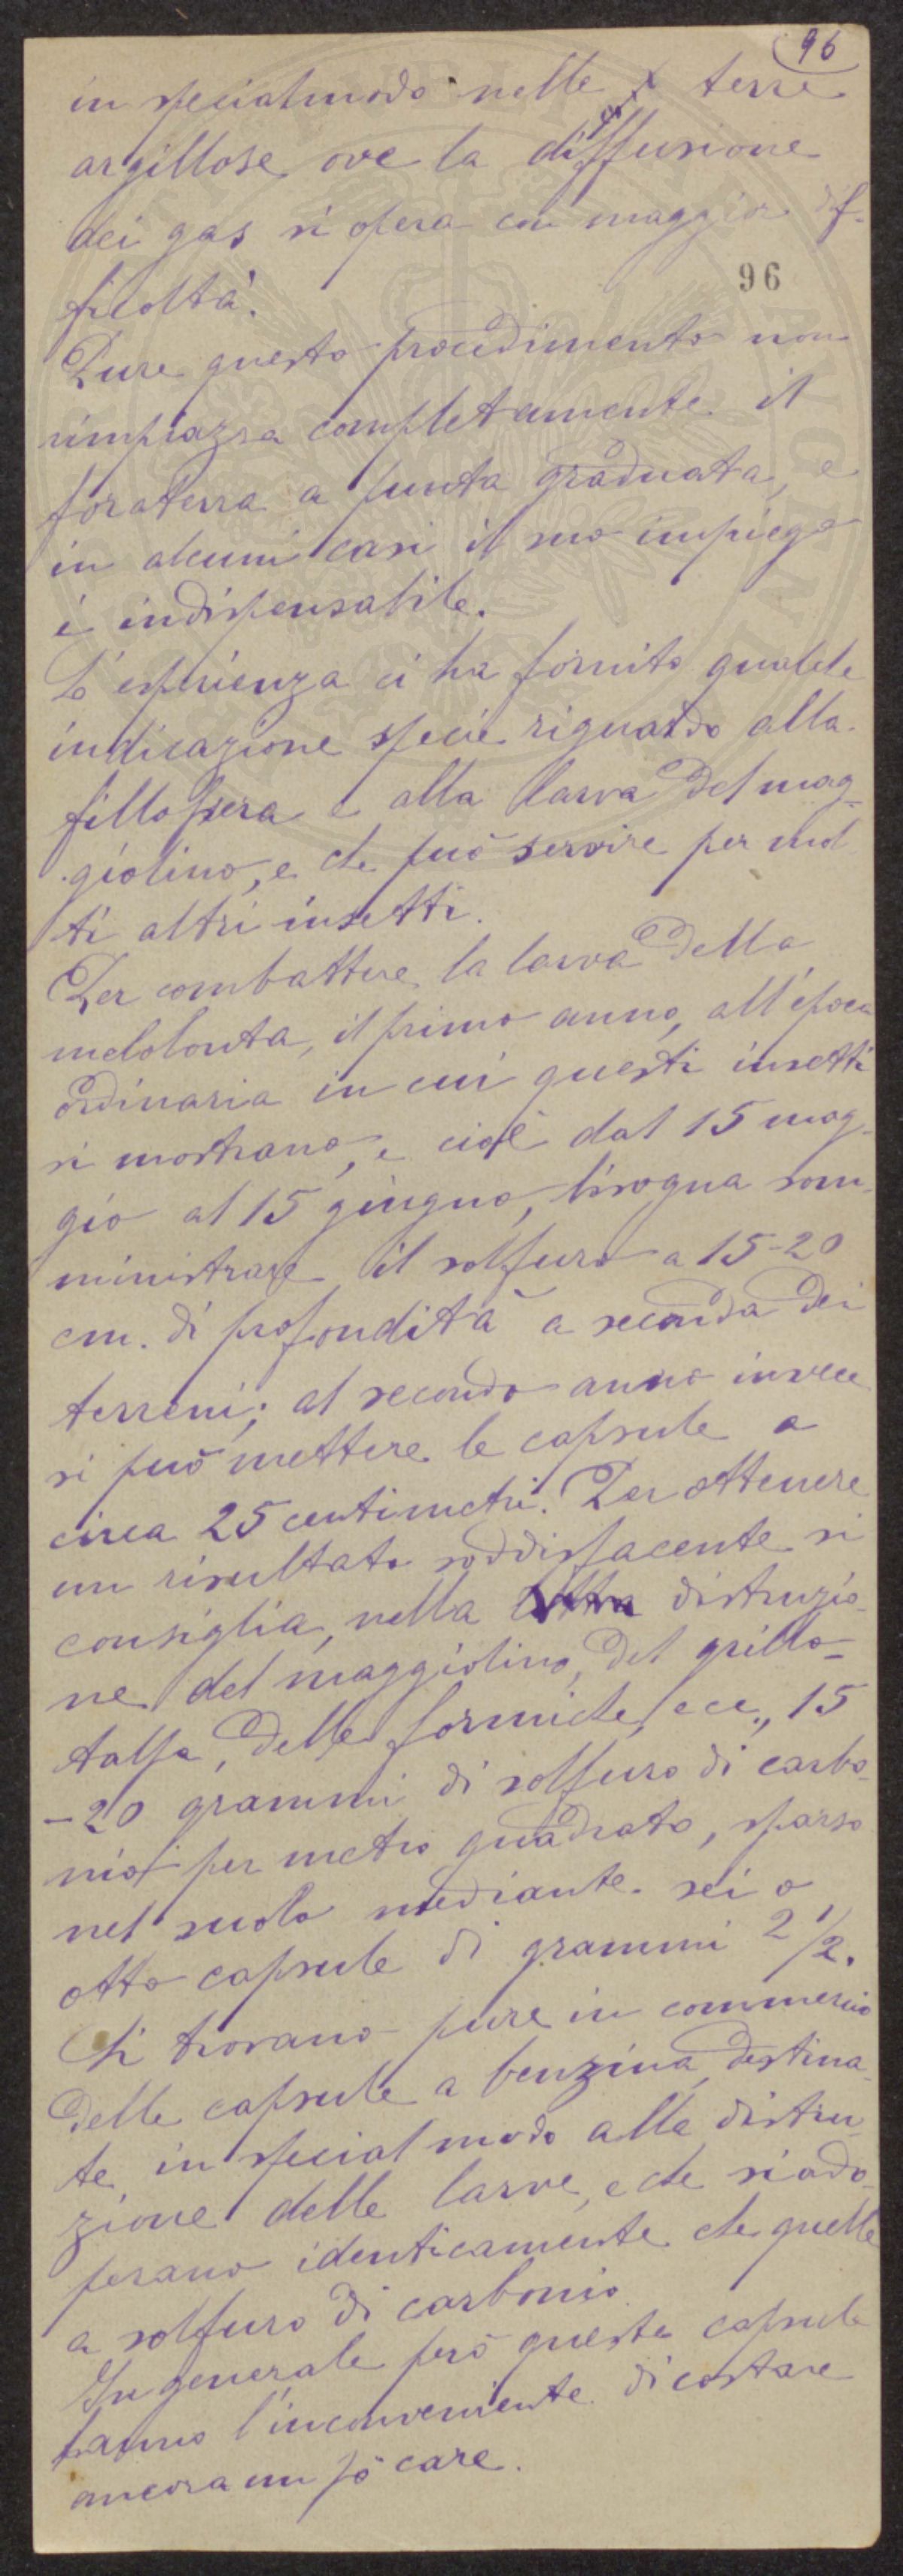 96
in specialmodo nelle terre
argillose ove la diffusione
dei gas si opera con maggior dif-
ficoltà.
96
Pure questo procedimento non
rimpiazza completamente il
foraterra a punta graduata, e
in alcuni casi il suo impiego
è indispensabile.
L'esperienza ci ha fornito qualche
indicazione specie riguardo alla
fillossera e alla larva del mag-
giolino, e che può servire per mol
ti altri insetti.
Per combattere la larva della
melolonta, il primo anno, all'epoca
ordinaria in cui questi insetti
si mostrano, e cioè dal 15 mag-
gio al 15 giugno, bisogna som-
ministrare il solfuro a 15-20
cm. di profondità a seconda dei
terreni; al secondo anno invece
si può mettere le capsule a
circa 25 centimetri. Per ottenere
un risultato soddisfacente si
consiglia, nella distruzio-
ne del maggiolino, del grillo-
talpa, delle formiche, ecc., 15
-20 grammi di solfuro di carbo-
nio per metro quadrato, sparso
nel suolo mediante sei o
otto capsule di grammi 2 1/2.
Si trovano pure in commercio
delle capsule a benzina, destina-
te in special modo alla distru-
zione delle larve, e che si ado-
perano identicamente che quelle
a solfuro di carbonio.
In generale però queste capsule
hanno l'inconveniente di costare
ancora un pò care.